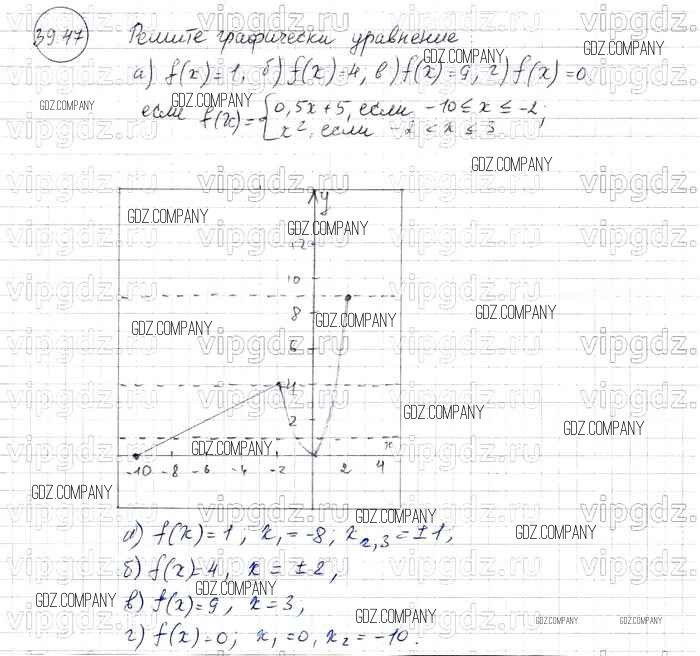 39.47 Решите графически уравнение
а) f(x)=1, б) f(x)=4, в) f(x)=9, г) f(x)=0
если f(x)= { 0,5x+5, если -10≤x≤-2;
x², если -2<x≤3
y
12
10
8
6
4
2
x
-10 -8 -6 -4 -2 2 4
а) f(x)=1, x₁=-8; x₂,₃=±1;
б) f(x)=4, x=±2,
в) f(x)=9, x=3;
г) f(x)=0; x₁=0, x₂=-10.
GDZ.COMPANY
vipgdz.ru